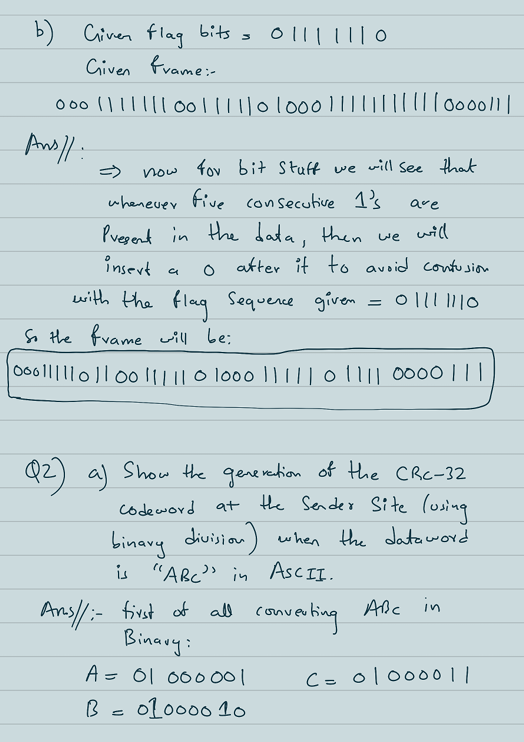 b) Given flag bits = 01111110
Given frame:-
0001111111001111101000111111111110000111
Ans//:
⇒ now for bit stuff we will see that
whenever five consecutive 1's are
Present in the data, then we will
insert a 0 after it to avoid confusion
with the flag Sequence given = 01111110
So the frame will be:
000111110110011111010001111101111 0000111
Q2) a) Show the generation of the CRC-32
codeword at the Sender Site (using
binary division) when the dataword
is "ABC" in ASCII.
Ans//:- first of all converting ABC in
Binary:
A = 01 000001 C = 01000011
B = 01000010